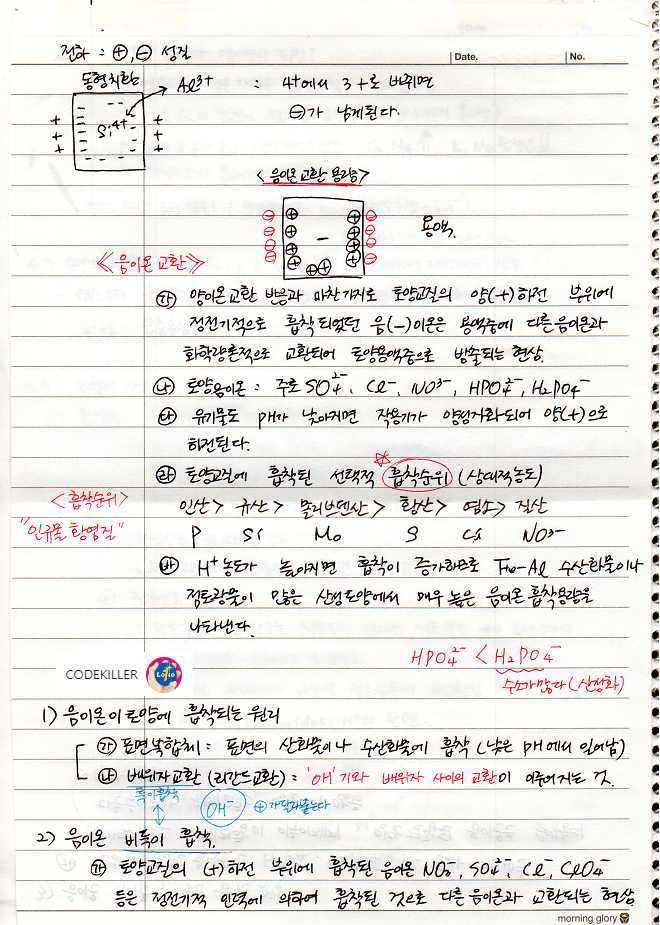 전하 : ⊕, ⊖ 성질
Date.
No.
동형치환
Al³⁺ : 4+에서 3+로 바뀌면
Si⁴⁺
⊖가 남게된다.
<음이온 교환 용량>
용액.
≪음이온 교환≫
㉮ 양이온교환 반응과 마찬가지로 토양교질의 양(+)하전 부위에
정전기적으로 흡착되었던 음(-)이온은 용액중에 다른음이온과
화학량론적으로 교환되어 토양용액중으로 방출되는 현상.
㉯ 토양음이온 : 주로 SO₄²⁻, Cl⁻, NO³⁻, HPO₄²⁻, H₂PO₄⁻
㉰ 유기물도 pH가 낮아지면 작용기가 양성자화되어 양(+)으로
하전된다.
㉱ 토양교질에 흡착된 선택적 ☆흡착순위 (상대적농도)
<흡착순위>
인산> 규산> 몰리브덴산> 황산> 염소> 질산
"인규몰 황염질"
P Si Mo S Cl NO³⁻
㉲ H⁺농도가 높아지면 흡착이 증가하므로 Fe-Al 수산화물이나
점토광물이 많은 산성토양에서 매우 높은 음이온 흡착용량을
나타낸다.
HPO₄²⁻ < H₂PO₄⁻
수소가많다(산성화)
CODEKILLER
Lotto
1) 음이온이 토양에 흡착되는 원리
㉮ 표면복합체 : 표면의 산화물이나 수산화물에 흡착 (낮은 pH에서 일어남)
㉯ 배위자교환 (리간드교환) = 'OH'기와 배위자 사이의 교환이 이루어지는 것.
특이흡착
OH⁻
2) 음이온 비특이 흡착.
㉮ 토양교질의 (+)하전 부위에 흡착된 음이온 NO₃⁻, SO₄²⁻, Cl⁻, ClO₄⁻
등은 정전기적 인력에 의하여 흡착된 것으로 다른음이온과 교환되는 현상
morning glory